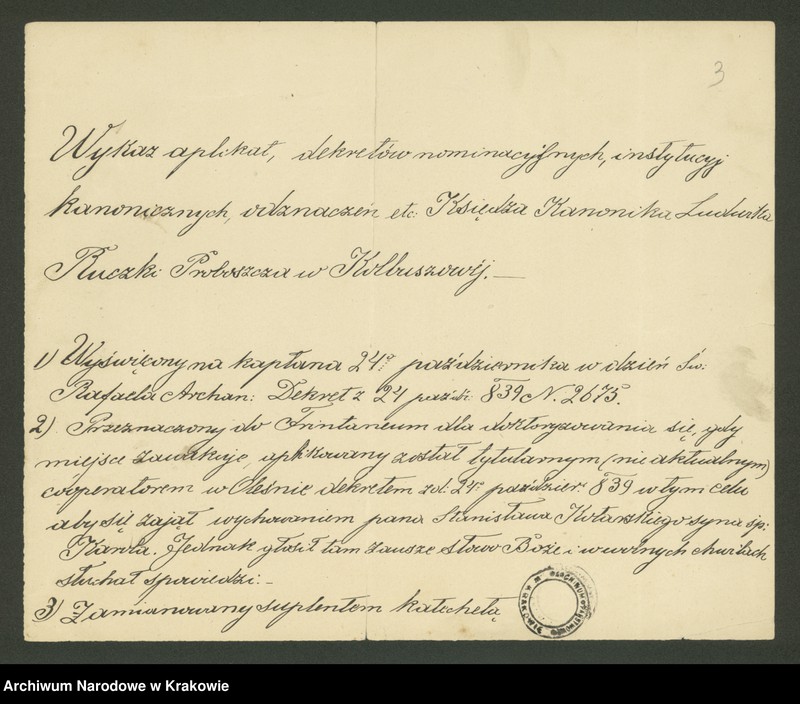 3
Wykaz aplikat, dekretów nominacyjnych, instytucyj
kanonicznych, odznaczeń etc: Księdza Kanonika Ludwika
Ruczki Proboszcza w Kolbuszowéj. —
1) Wyświęcony na kapłana 24º października w dzień Św:
Rafaela Archan: Dekret z 24 paźdź: 839 N. 2675.
2) Przeznaczony do Frintaneum dla doktoryzowania się, gdy
miejsce zawakuje, aplikowany został tytularnym (nie aktualnym)
cooperatorem w Oleśnie dekretem zd: 24º paździer: 839 w tym celu
aby się zajął wychowaniem pana Stanisława Kotarskiego syna śp:
Karola. Jednak głosił tam zawsze słowo Boże i w wolnych chwilach
słuchał spowiedzi: –
3) Zamianowany suplentem katechetą
Archiwum Narodowe w Krakowie